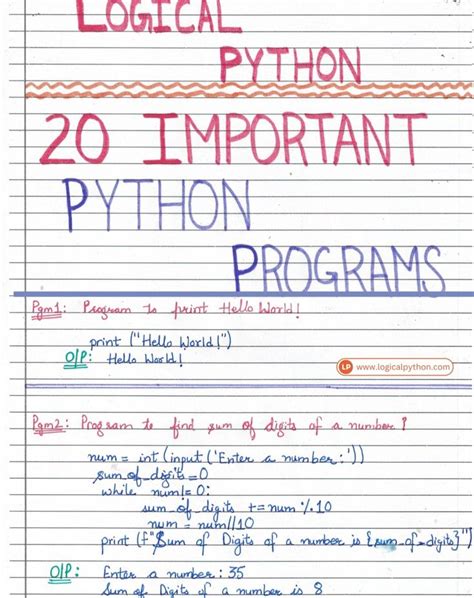 LOGICAL
PYTHON
20 IMPORTANT
PYTHON
PROGRAMS
Pgm1: Program to print Hello World!
print ("Hello World!")
O/P: Hello World!
LP www.logicalpython.com
Pgm2: Program to find sum of digits of a number?
num = int(input('Enter a number:'))
sum_of_digits=0
while num!=0:
sum_of_digits +=num%10
num = num//10
print (f"Sum of Digits of a number is {sum_of_digits}")
O/P: Enter a number: 35
Sum of Digits of a number is 8